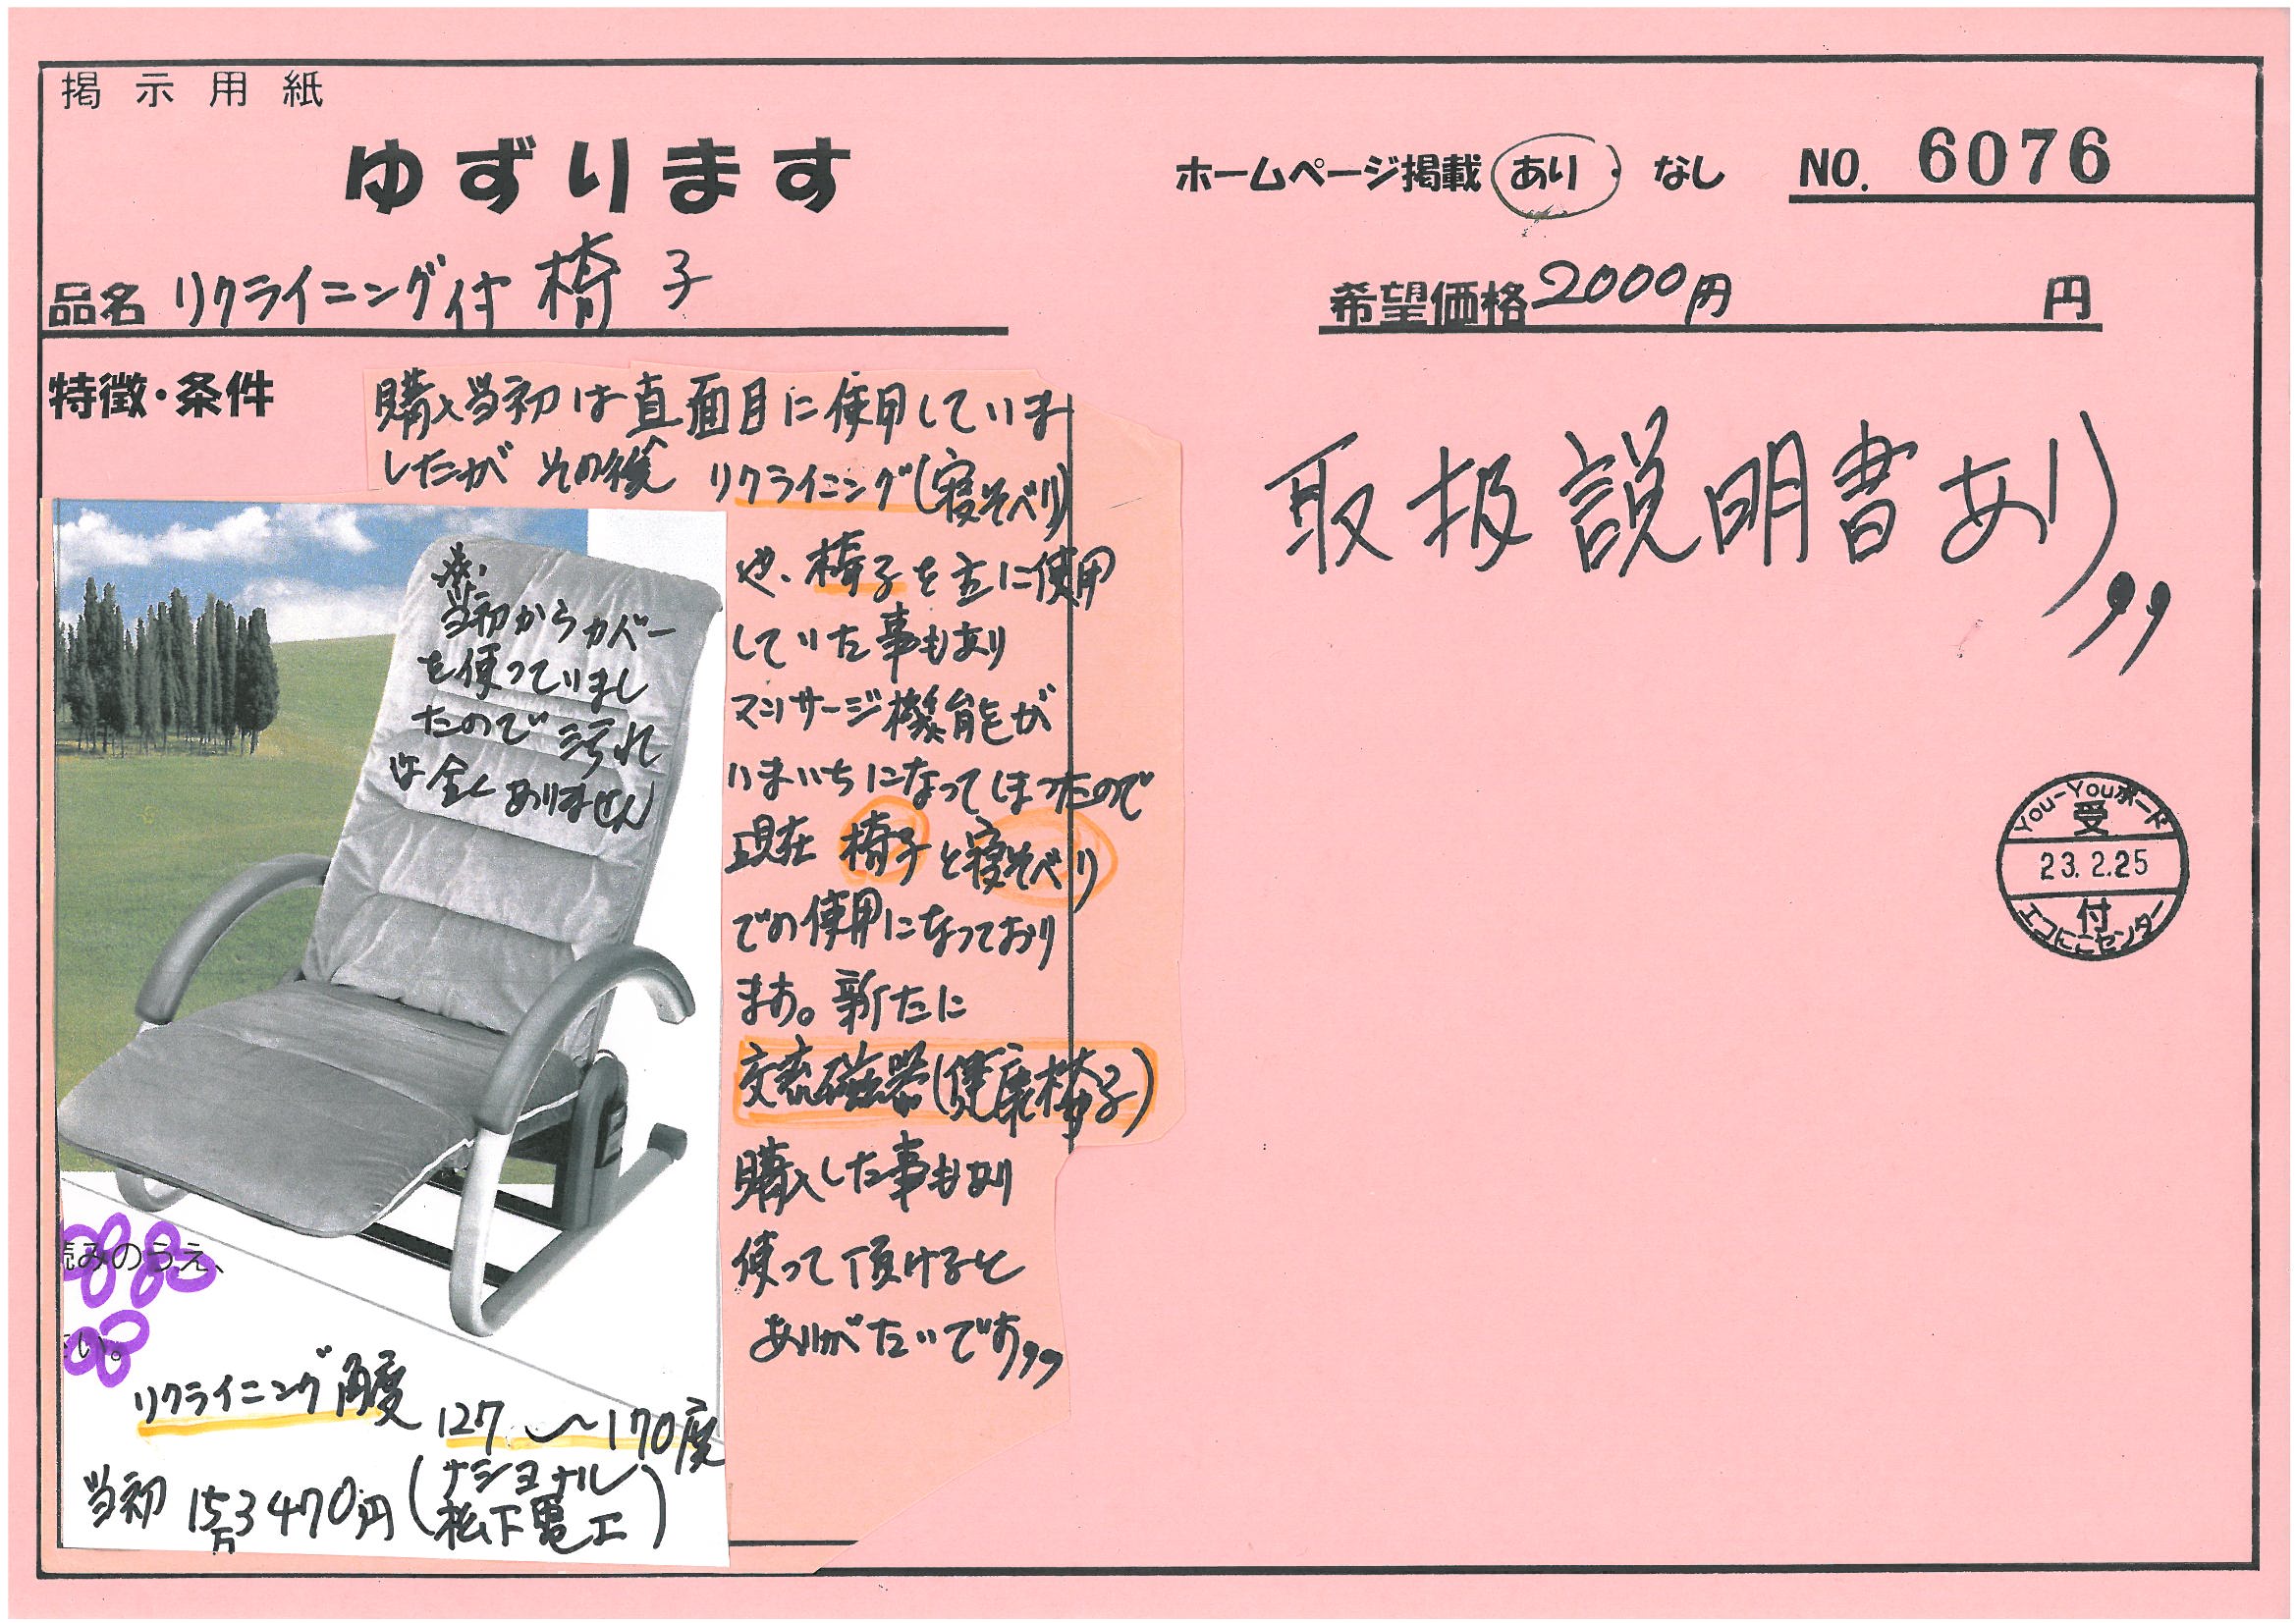 掲示用紙
ゆずります
ホームページ掲載 あり・なし
NO. 6076
品名 リクライニング付椅子
希望価格 2000円 円
特徴・条件
購入当初は真面目に使用していま
したが その後 リクライニング(寝そべり)
や、椅子を主に使用
していた事もあり
マッサージ機能が
いまいちになってしまったので
現在 椅子と寝そべり
での使用になっており
ます。新たに
交流磁器(健康椅子)
購入した事もあり
使って頂けると
ありがたいです,,
当初からカバー
を使っていまし
たので 汚れ
は全くありません
読みのうえ、
さい。
リクライニング角度
127 〜170度
当初 15万3470円 (ナショナル
松下電工)
取扱説明書あり,,
You-Youボード
受
23.2.25
付
エコにこセンター